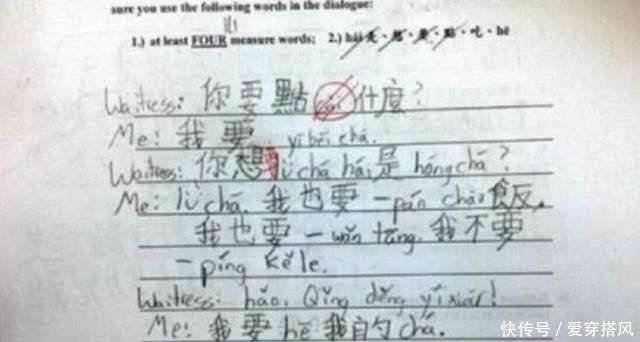 sure you use the following words in the dialogue:
1.) at least FOUR measure words; 2.) hái是、想、要、點、吃、hē
Waitress: 你要點cài什麼?
Me: 我要 yì bēi chá.
Waitress: 你想要lǜ chá hái是 hóng chá?
Me: lǜ chá. 我也要一pán chǎo飯,
我也要一wǎn tāng. 我不要
一píng kě lè.
Waitress: hǎo. Qǐng děng yí xiàr!
Me: 我要hē我的chá.
快传号/爱穿搭风